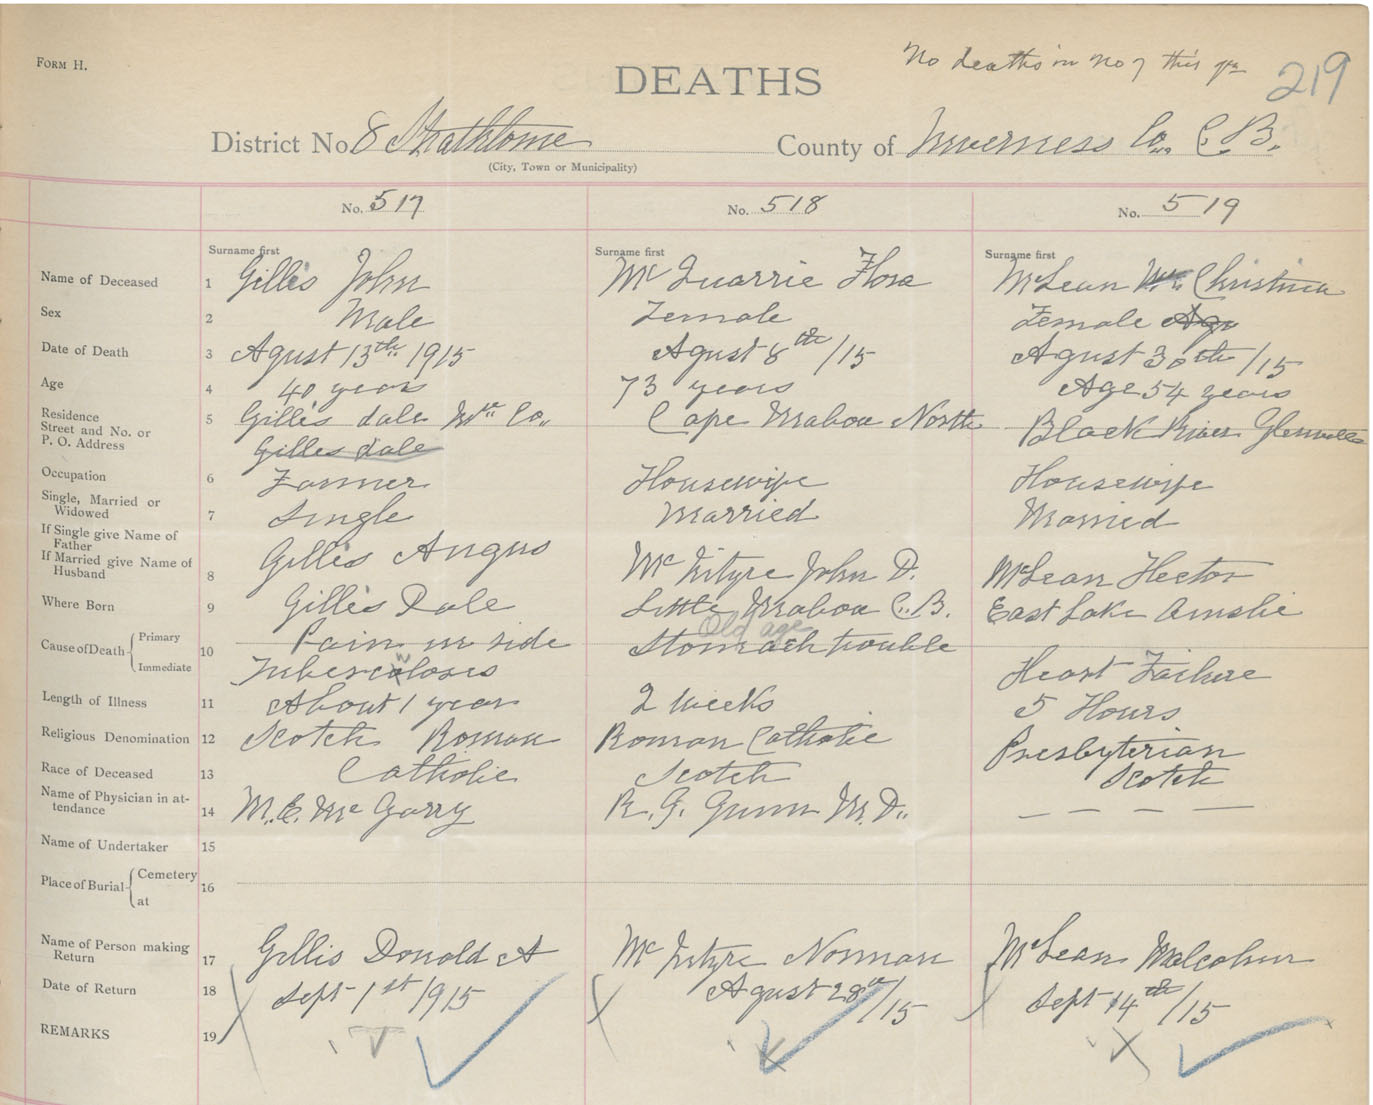 FORM H.
No deaths in No 7 this qr
219
DEATHS
District No. 8 Strathlorne
County of Inverness Co. C. B.
(City, Town or Municipality)
No. 517
No. 518
No. 519
Surname first
Surname first
Surname first
Name of Deceased 1 Gillis John
Mc Quarrie Flora
McLean Christina
Sex 2 Male
Female
Female Age
Date of Death 3 Agust 13th 1915
Agust 8th /15
Agust 30th /15
Age 4 40 years
73 years
Age 54 years
Residence
Street and No. or
P. O. Address
5 Gillis dale Co.
Gilles dale
Cape Mabou North
Black River Glenville
Occupation 6 Farmer
Housewife
Housewife
Single, Married or
Widowed
7 Single
Married
Married
If Single give Name of
Father
If Married give Name of
Husband
8 Gillis Angus
Mc Intyre John D.
McLean Hector
Where Born 9 Gillis Dale
Little Mabou C. B.
East Lake Ainslie
Cause of Death Primary
Immediate
10 Pain in side
Tuberculosis
Old age
Stomach trouble
Heart Failure
Length of Illness 11 About 1 year
2 weeks
5 Hours
Religious Denomination 12 Scotch Roman
Roman Catholic
Presbyterian
Race of Deceased 13 Catholic
Scotch
Scotch
Name of Physician in at-
tendance
14 M. E. Mc Garry
R. G. Gunn M. D.
— — — —
Name of Undertaker 15
Place of Burial Cemetery
at
16
Name of Person making
Return
17 Gillis Donald A
Mc Intyre Norman
McLean Malcolm
Date of Return 18 Sept 1st 1915
Agust 28th /15
Sept 14th /15
REMARKS 19